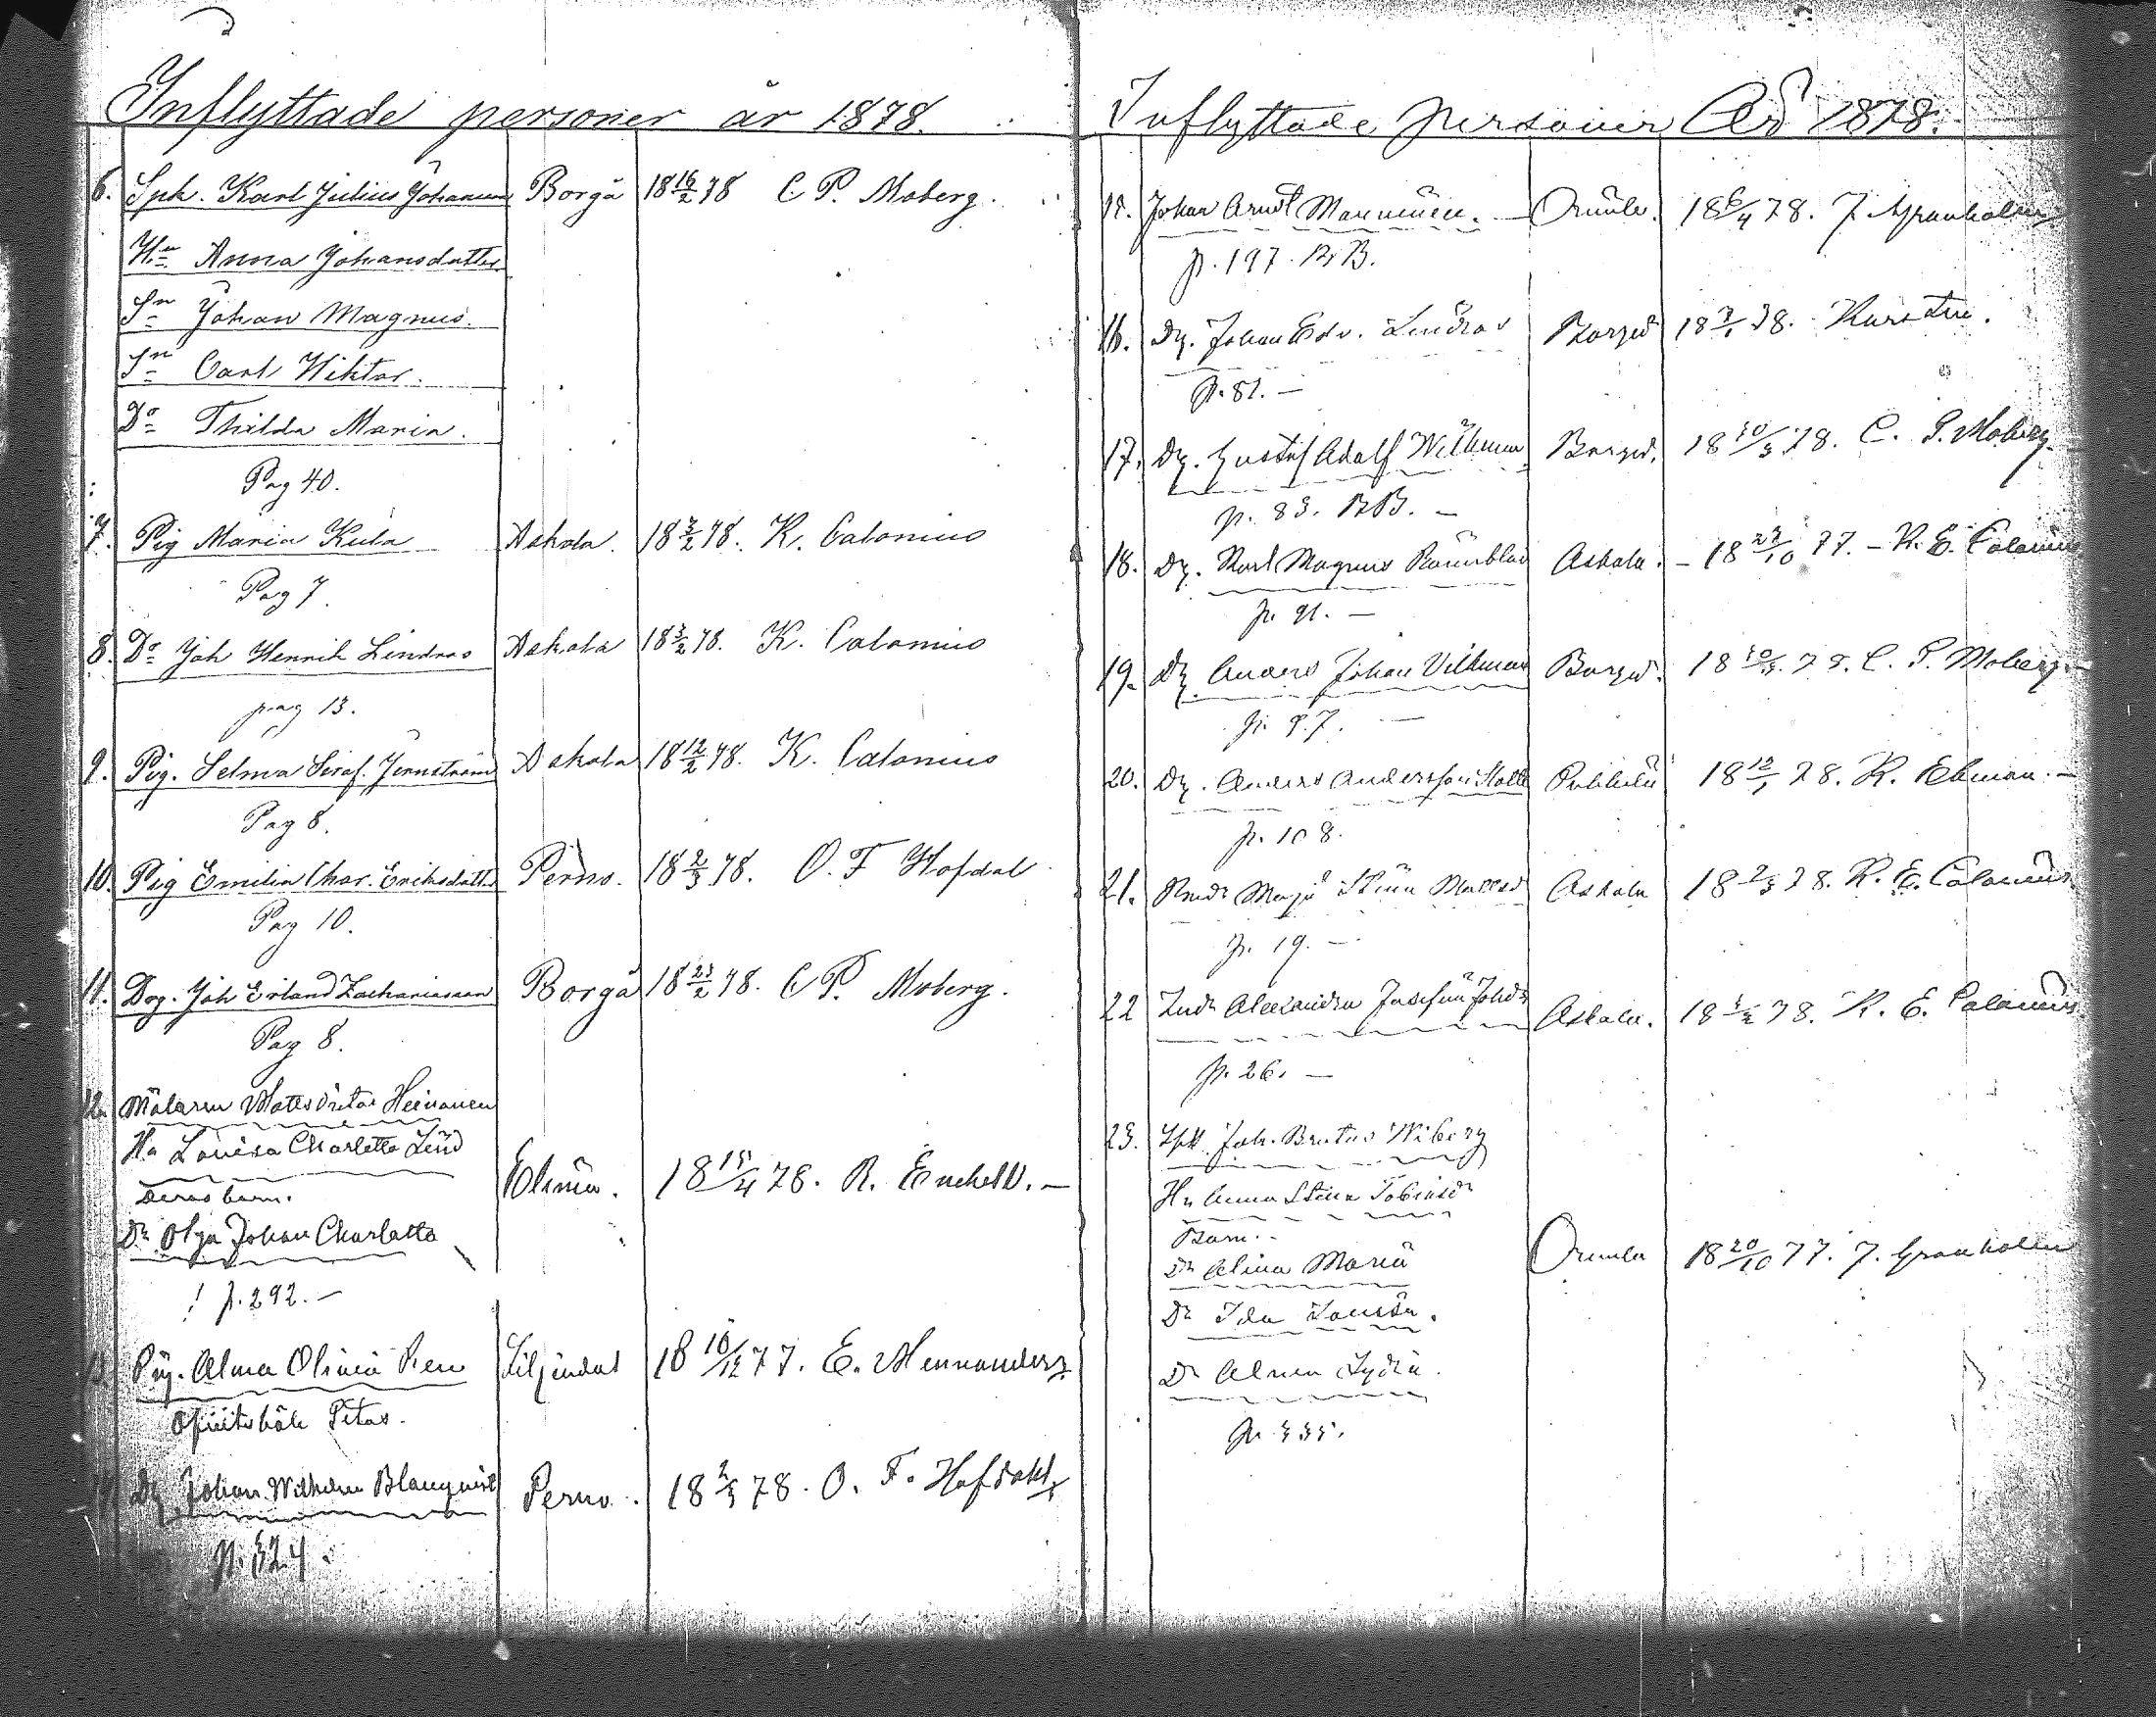 Inflyttade personer år 1878.
6. Sph. Karl Julius Johansson Borgå 18 16/2 78 C. P. Moberg.
Hu Anna Johansdotter
Sn Johan Magnus.
Sn Carl Wiktor.
Do Thilda Maria.
Pag 40.
7. Pig Maria Kula Askola. 18 3/2 78. K. Calonius
Pag 7.
8. Do Joh Henrik Lindroos Askola 18 3/2 78. K. Calonius
pag 13.
9. Pig. Selma Seraf. Jernström Askola 18 12/2 78. K. Calonius
Pag 8.
10. Pig Emilia Char. Eriksdotter Perno. 18 2/3 78. O. F Hofdal
Pag 10.
11. Dog. Joh Erland Zachariasson Borgå 18 23/2 78. C P. Moberg.
Pag 8.
12. Målaren Matts Heinonen
Hu Lovisa Charlotta Lind
Deras barn.
Dr Olga Johan Charlotta Elimä. 18 15/4 78. R. Enckell. —
p. 292. —
13. Pig. Alma Olivia Ren Liljendal 18 10/12 77. E. Mennander
Pitas.
14. Dg Johan Wilhelm Blanqvist Perno. 18 2/3 78. O. F. Hofdahl
p. 324.
Inflyttade personer År 1878.
15. Johan Arndt Manninen. Orimla. 18 6/4 78. J. Granholm
p. 197. R B.
16. Dg. Johan Edv. Lindroos Borgå 18 78.
p. 81. —
17. Dg. Gustaf Adolf Wilkman Borgå. 18 30/3 78. C. P. Moberg.
p. 83. RB. —
18. Dg. Karl Magnus Rönnblad Askola. — 18 27/10 77. — K. E. Calonius
p. 91. —
19. Dg. Anders Johan Vilkman Borgå. 18 30/3 78. C. P. Moberg. —
p. 97. —
20. Dg. Anders Andersson Pukkila 18 12/1 78. K. Ekman. —
p. 108.
21. Maja Stina Askola 18 2/3 78. K. E. Calonius
p. 19. —
22 Alexandra Josefina Johdr Askola. 18 78. K. E. Calonius
p. 26. —
23. Sph Joh. Brutus Wiberg
Hu Anna Stina Tobiasdr
Barn.
Dr Alina Maria Orimla 18 20/10 77. J. Granholm
Dr Ida Lovisa.
Dr Alma Lydia.
p. 335.